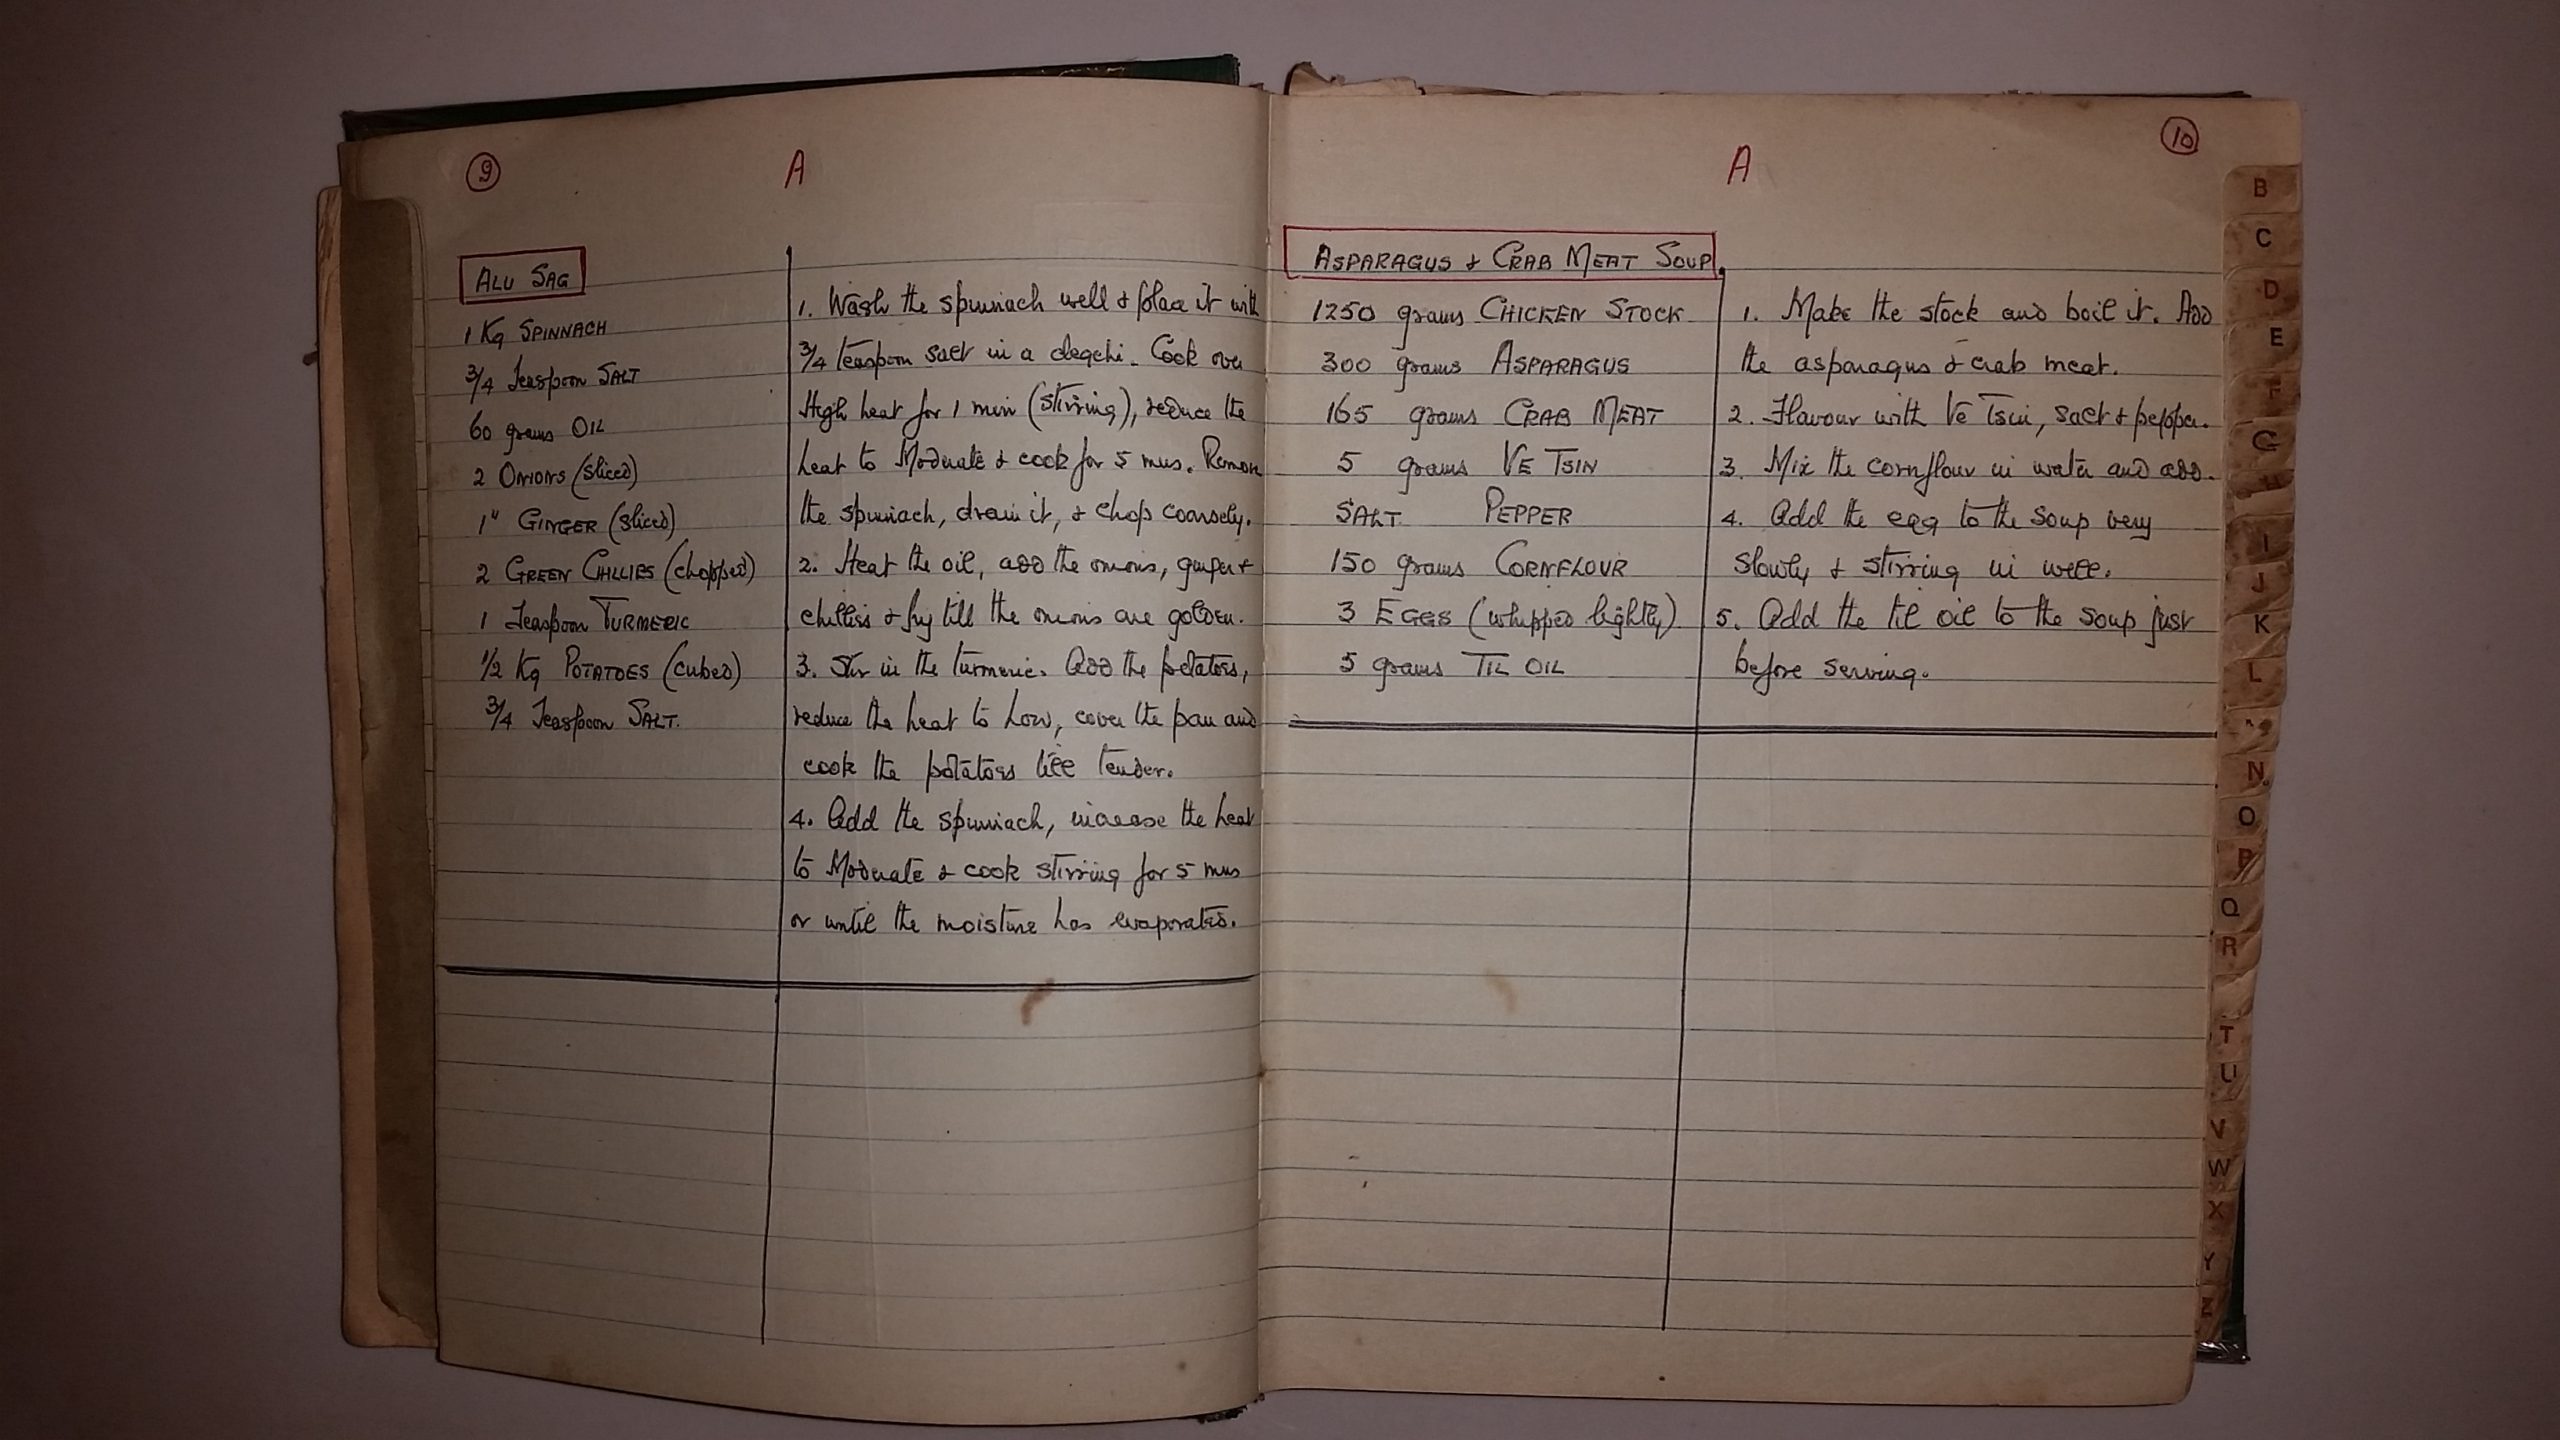 9
A
ALU SAG
1 Kg SPINNACH
3/4 Teaspoon SALT
60 grams OIL
2 ONIONS (sliced)
1" GINGER (sliced)
2 GREEN CHLLIES (chopped)
1 Teaspoon TURMERIC
1/2 Kg POTATOES (cubed)
3/4 Teaspoon SALT.
1. Wash the spinnach well & place it with
3/4 teaspoon salt in a degchi. Cook over
High heat for 1 min (stirring), reduce the
heat to Moderate & cook for 5 mns. Remove
the spinnach, drain it, & chop coarsely.
2. Heat the oil, add the onions, ginger &
chillies & fry till the onions are golden.
3. Stir in the turmeric. Add the potatoes,
reduce the heat to Low, cover the pan and
cook the potatoes till tender.
4. Add the spinnach, increase the heat
to Moderate & cook stirring for 5 mns
or until the moisture has evaporated.
10
A
ASPARAGUS & CRAB MEAT SOUP
1250 grams CHICKEN STOCK
300 grams ASPARAGUS
165 grams CRAB MEAT
5 grams VE TSIN
SALT PEPPER
150 grams CORNFLOUR
3 EGGS (whipped lightly)
5 grams TIL OIL
1. Make the stock and boil it. Add
the asparagus & crab meat.
2. Flavour with Ve Tsin, salt & pepper.
3. Mix the cornflour in water and add.
4. Add the egg to the soup very
slowly & stirring in well.
5. Add the til oil to the soup just
before serving.
B
C
D
E
F
G
H
I
J
K
L
N
O
P
Q
R
T
U
V
W
X
Y
Z